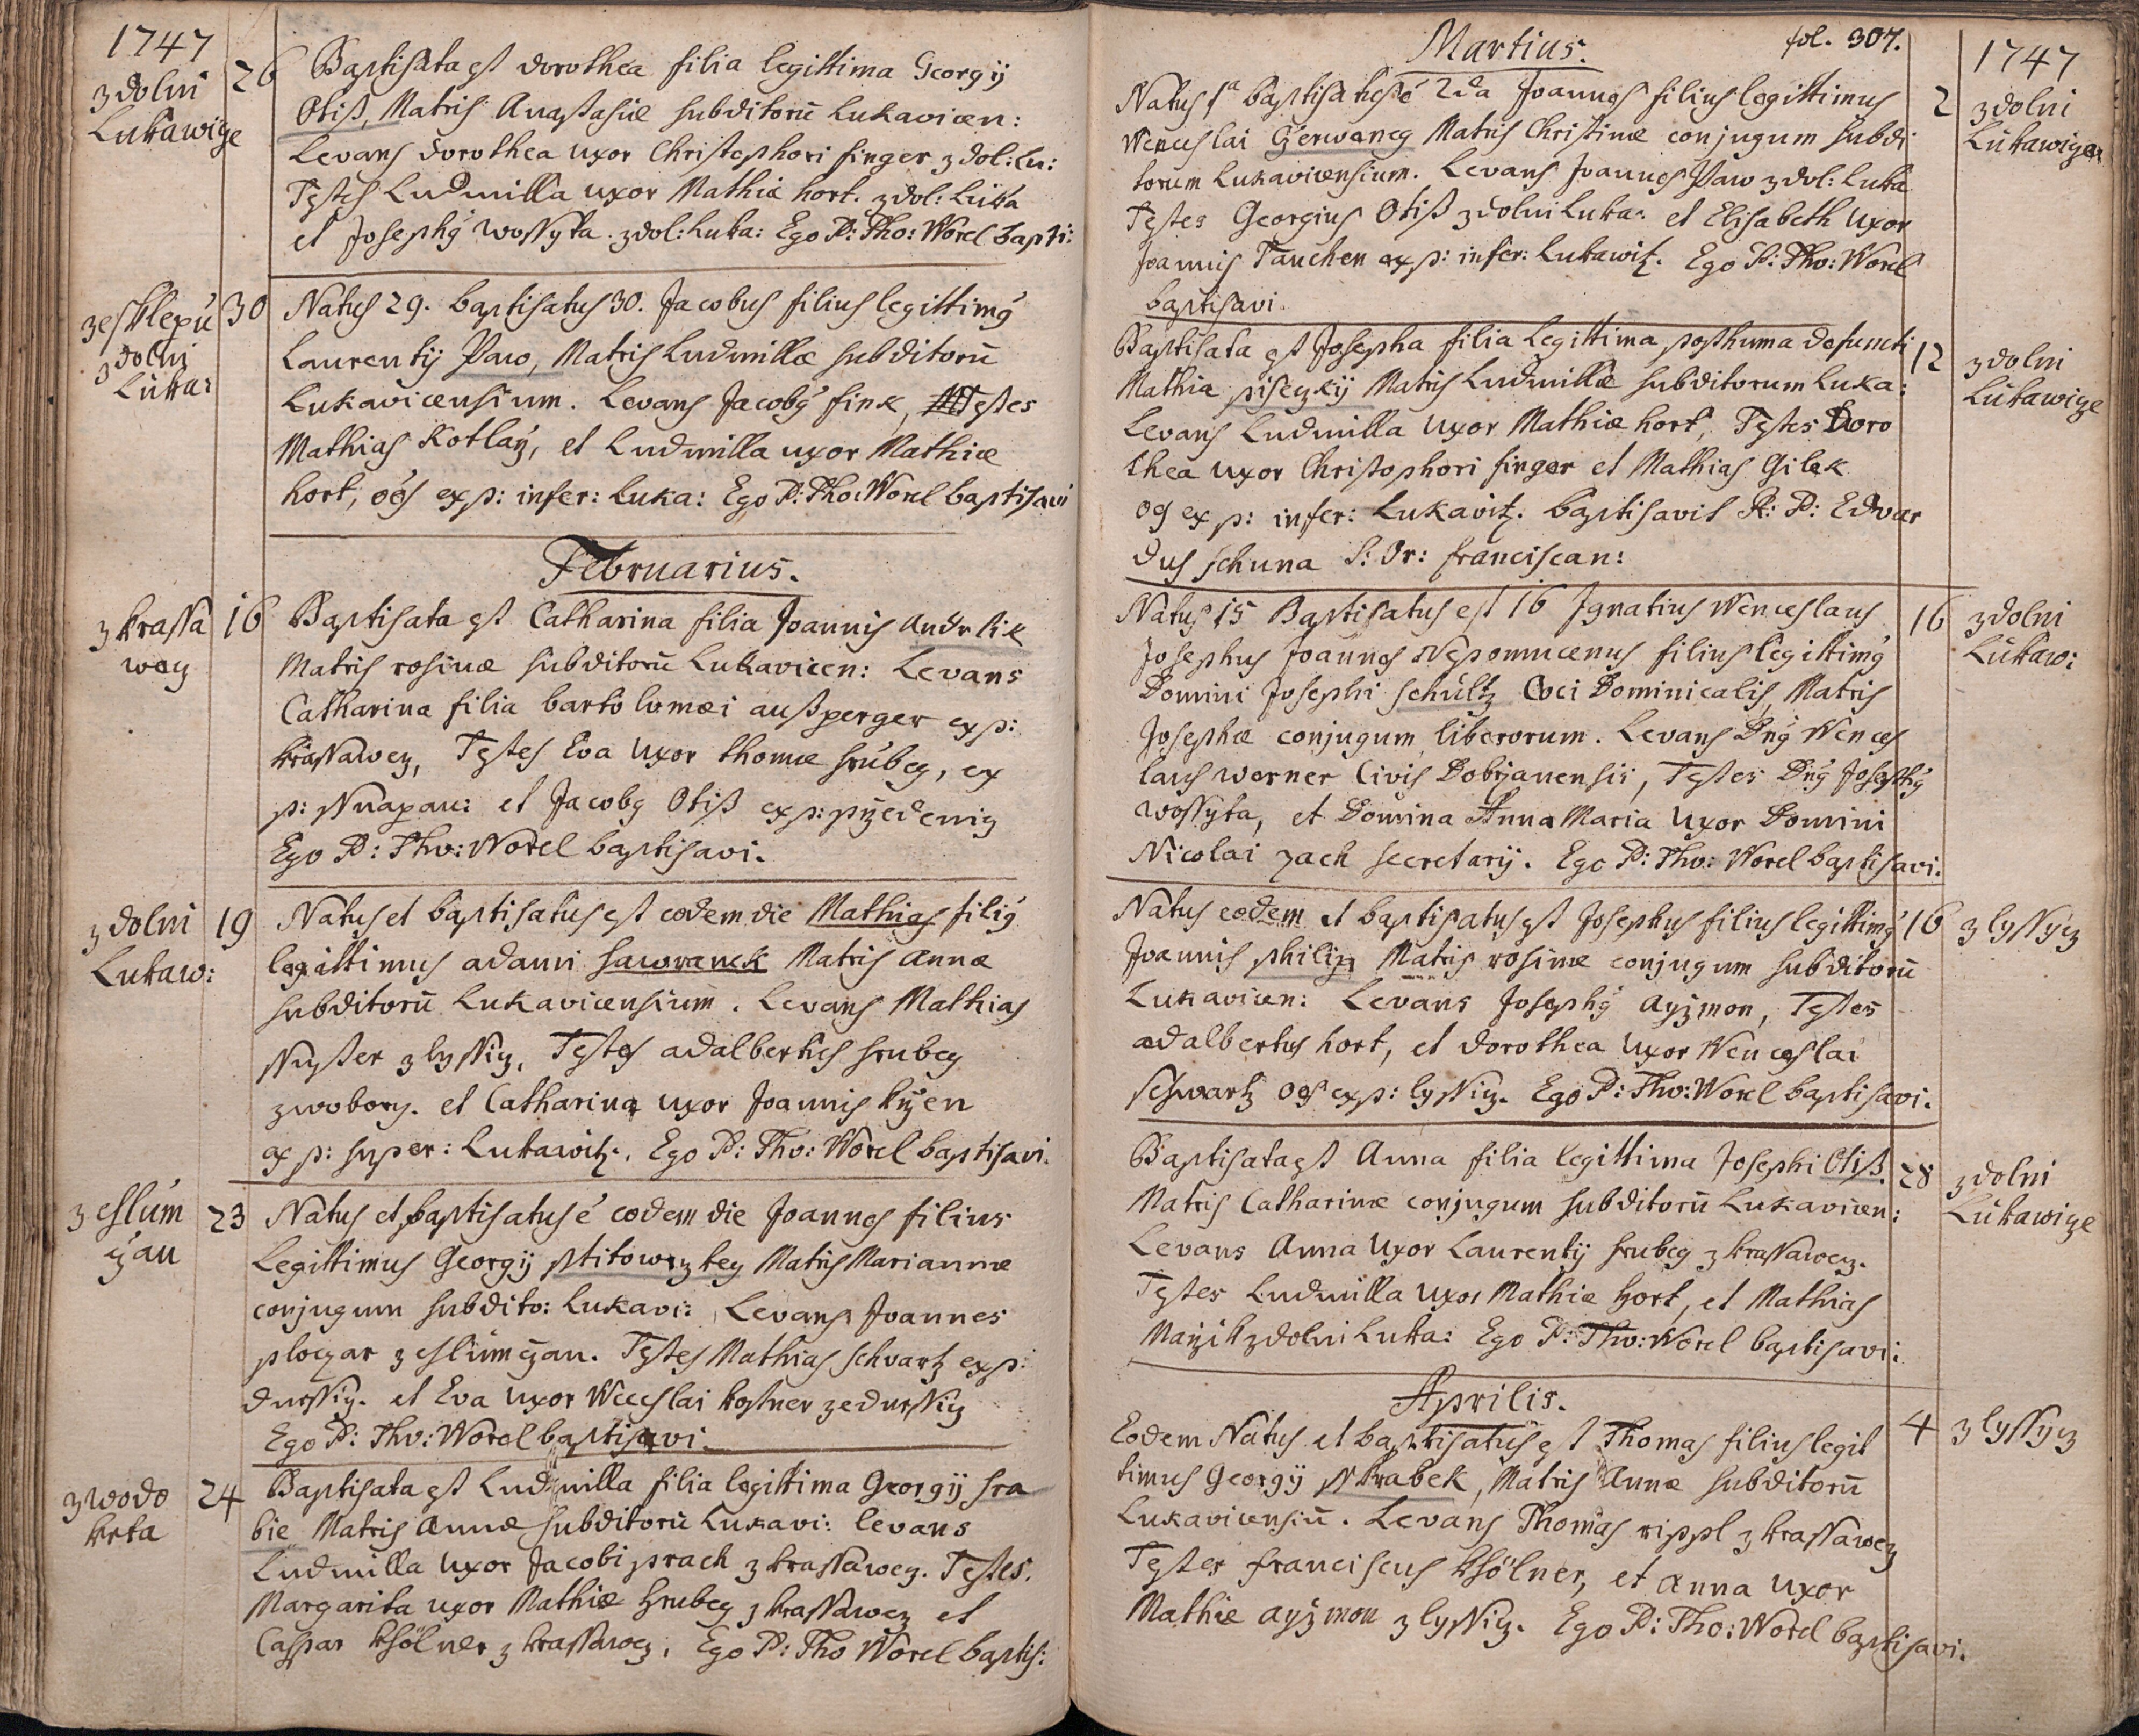 1747
z dolni
Lukawize
26
Baptisata est dorothea filia legittima Georgÿ
Otiß, Matris Anastasiæ subditorū Lukavicen:
Levans dorothea uxor Christophori finger z dol: Lu:
Testes Ludmilla uxor Mathiæ hort. z dol: Luka
et Josephq wossyka. z dol: Luka: Ego P: Tho: Worel bapti:
z esklepu
z dolni
Luka:
30
Natus 29. baptisatus 30. Jacobus filius legittimq
Laurentÿ Paw, Matris Ludmillæ subditorū
Lukavicensium. Levans Jacobq fink, Testes
Mathias Kotlaž, et Ludmilla uxor Mathiæ
hort, oēs ex p: infer: Luka: Ego P: Tho: Worel baptisavi
Februarius.
z krassa
wcz
16
Baptisata est Catharina filia Joannis Andrlik
Matris rosinæ subditorū Lukavicen: Levans
Catharina filia bartolomæi außperger ex p:
krassawcz, Testes Eva Uxor thomæ hrubey, ex
Ego P: Tho: Worel baptisavi.
z dolni
Lukaw:
19
Natus et baptisatus est eodem die Mathias filiq
legittimus adami sawranek Matris Annæ
subditorū Lukavicensium. Levans Mathias
z lyssiz, Testes adalbertus hrubey
z wobory. et Catharina uxor Joannis kržen
ex p: super: Lukawitz. Ego P: Tho: Worel baptisavi.
z eslum
čzan
23
Natus et baptisatus ē eodem die Joannes filius
Legittimus Georgÿ stitowzkey Matris Mariannæ
conjugum subdito: Lukavi: Levans Joannes
ploczar z eslumčzan. Testes Mathias schvartz ex p:
durssiz. et Eva uxor Wceslai kostner z edurssiz
Ego P: Tho: Worel baptisavi.
z wodo
krta
24
Baptisata est Ludmilla filia legittima Georgÿ hra
bie Matris Annæ subditorū Lukavi: levans
Ludmilla uxor Jacobi prach z krassawcz. Testes.
Margarita uxor Mathiæ hrubey z krassawcz et
Caspar khölner z krassawcz. Ego P: Tho Worel baptis:
Martius.
fol. 307.
1747
Natus 1ª baptisatus ē 2da Joannes filius legittimus
Wenceslai Czerweney Matris Christinæ conjugum subdi
torum Lukavicensium. Levans Joannes Paw z dol: Luka
Testes Georgius Otiß z dolni Luka: et Elisabeth uxor
Joannis Tauchen ex p: infer: Lukawitz. Ego P: Tho: Worel
baptisavi.
2
z dolni
Lukawize
Baptisata est Josepha filia Legittima posthuma defuncti
Mathiæ pisezkÿ Matris Ludmillæ subditorum Luka:
Levans Ludmilla uxor Mathiæ hort, Testes Doro
thea uxor Christophori finger et Mathias Gilek
oēs ex p: infer: Lukavitz. baptisavit R: P: Edvar
dus schuna S: Or: franciscan:
12
z dolni
Lukawize
Natus 15 Baptisatus est 16 Ignatius Wenceslaus
Josephus Joannes Nepomucenus filius legittimq
Domini Josephi schultz Coci Dominicalis, Matris
Josephæ conjugum liberorum. Levans Dnq Wences
laus werner Civis Dobrzanensis, Testes Dnq Josephq
wossyka, et Domina Anna Maria uxor Domini
Nicolai zach secretarÿ. Ego P: Tho: Worel baptisavi.
16
z dolni
Lukaw:
Natus eodem et baptisatus est Josephus filius legittimq
Joannis philip Matris rosinæ conjugum subditorū
Lukavicen: Levans Josephq ayzmon, Testes
adalbertus hort, et dorothea uxor Wenceslai
schwartz oēs ex p: lyssiz. Ego P: Tho: Worel baptisavi.
16
z lyssycz
Baptisata est Anna filia legittima Josephi Otiß.
Matris Catharinæ conjugum subditorū Lukavicen:
Levans Anna Uxor Laurentÿ hrubey z krassawcz.
Testes Ludmilla uxor Mathiæ hort, et Mathias
z dolni Luka: Ego P: Tho: Worel baptisavi:
28
z dolni
Lukawize
Aprilis.
Eodem Natus et baptisatus est Thomas filius legit
timus Georgÿ skrabek, Matris Annæ subditorū
Lukavicensiū. Levans Thomas rippl z krassawcz
Testes franciscus khölner, et Anna uxor
Mathiæ ayzmon z lyssiz. Ego P: Tho: Worel baptisavi.
4
z lyssycz